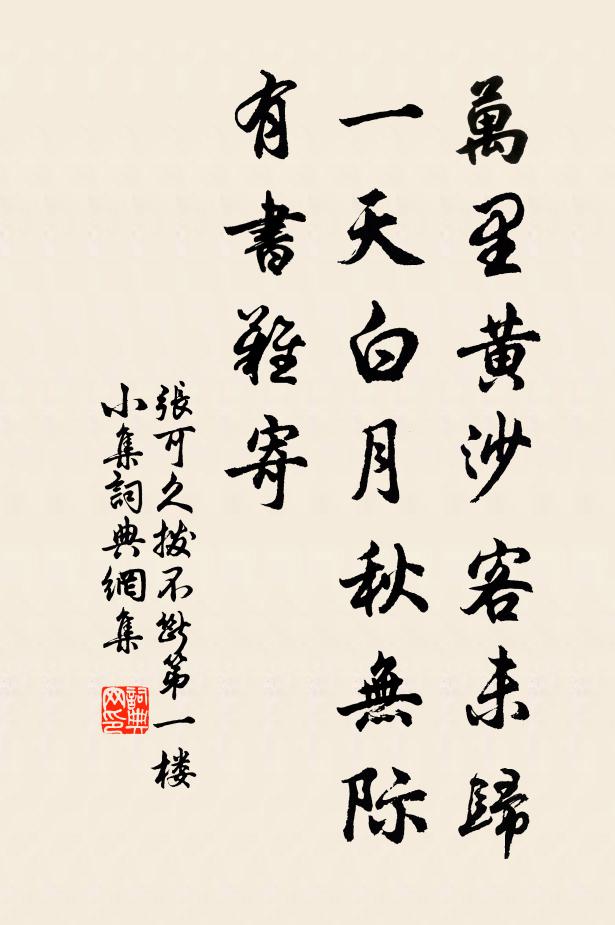 萬里黄沙客未歸
一天白月秋無际
有書難寄
張可久拨不斷第一楼
小集詞典網集
詞典網印